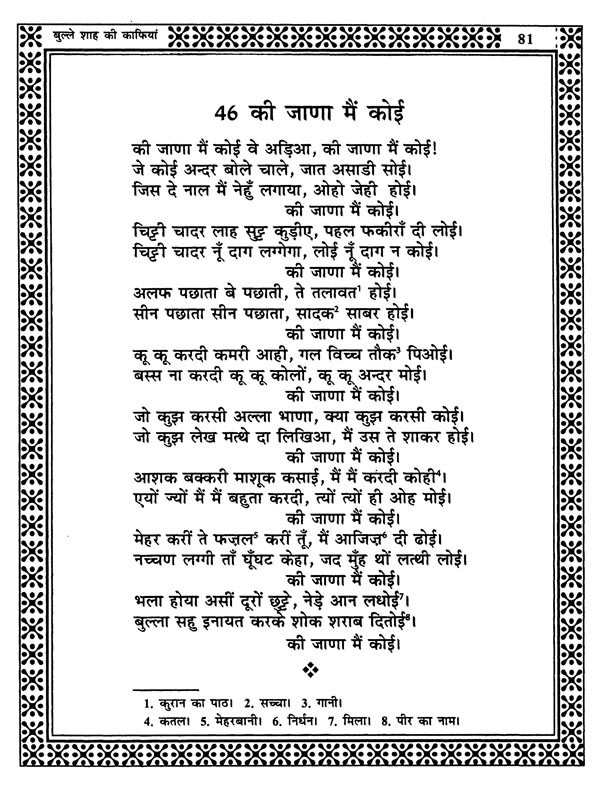 बुल्ले शाह की काफियां 81
46 की जाणा मैं कोई
की जाणा मैं कोई वे अड़िआ, की जाणा मैं कोई!
जे कोई अन्दर बोले चाले, जात असाडी सोई।
जिस दे नाल मैं नेहुँ लगाया, ओहो जेही होई।
की जाणा मैं कोई।
चिट्टी चादर लाह सुट्ट कुड़ीए, पहल फकीराँ दी लोई।
चिट्टी चादर नूँ दाग लग्गेगा, लोई नूँ दाग न कोई।
की जाणा मैं कोई।
अलफ पछाता बे पछाती, ते तलावत¹ होई।
सीन पछाता सीन पछाता, सादक² साबर होई।
की जाणा मैं कोई।
कू कू करदी कमरी आही, गल विच्च तौक³ पिओई।
बस्स ना करदी कू कू कोलों, कू कू अन्दर मोई।
की जाणा मैं कोई।
जो कुझ करसी अल्ला भाणा, क्या कुझ करसी कोई।
जो कुझ लेख मत्थे दा लिखिआ, मैं उस ते शाकर होई।
की जाणा मैं कोई।
आशक बक्करी माशूक कसाई, मैं मैं करदी कोही⁴।
एयों ज्यों मैं मैं बहुता करदी, त्यों त्यों ही ओह मोई।
की जाणा मैं कोई।
मेहर करीं ते फज़ल⁵ करीं तूँ, मैं आजिज़⁶ दी ढोई।
नच्चण लग्गी ताँ घूँघट केहा, जद मुँह थों लत्थी लोई।
की जाणा मैं कोई।
भला होया असीं दूरों छुट्टे, नेड़े आन लधोई⁷।
बुल्ला सहु इनायत करके शोक शराब दितोई⁸।
की जाणा मैं कोई।
1. कुरान का पाठ। 2. सच्चा। 3. गानी।
4. कतल। 5. मेहरबानी। 6. निर्धन। 7. मिला। 8. पीर का नाम।